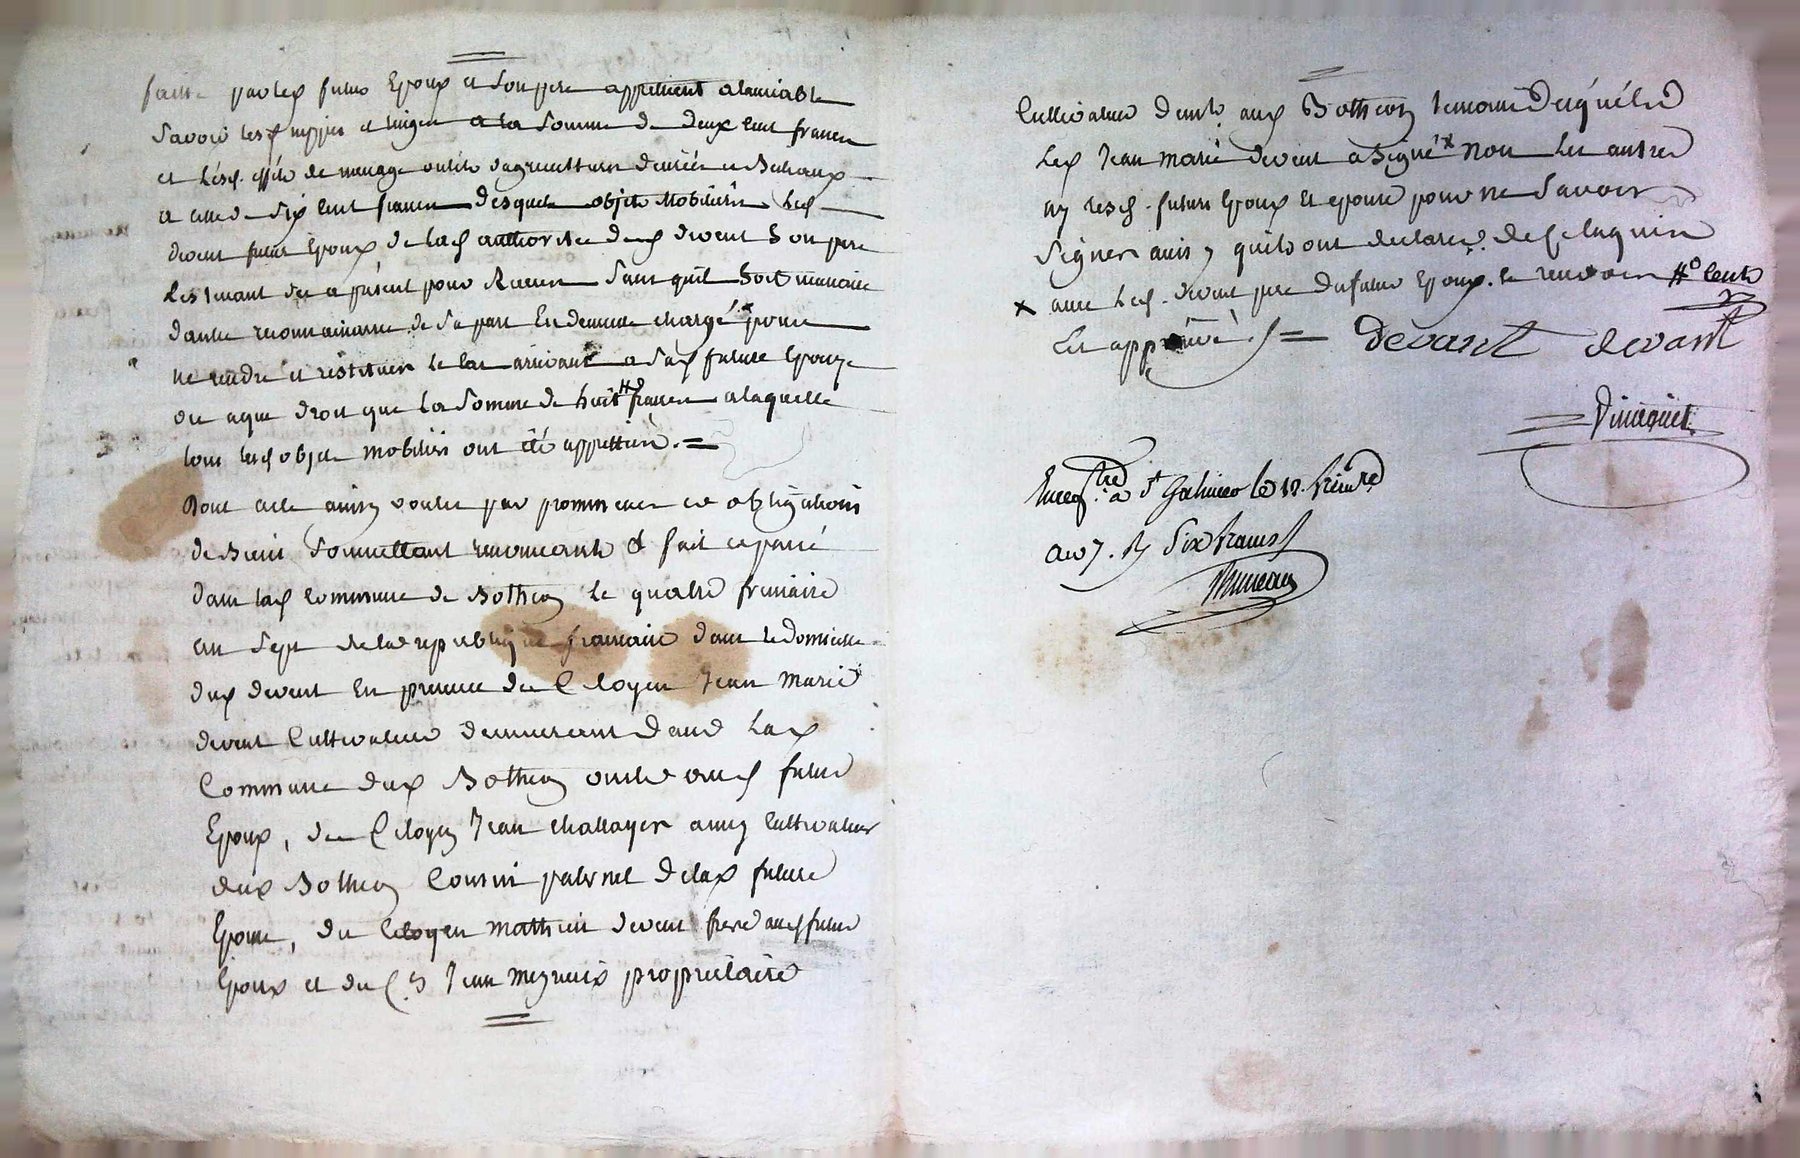 faitte par les futur Epoux et son pere appretient alamiable
Savoir les nippes et linges a la Somme de deux cent francs
et lesd. effets de menage outils dagriculture denrées et Bestiaux
a celle de Six cent francs desquels objets Mobiliers led.
devant futur Epoux, de lad. authorité dud. devant Son pere
les tenant des a présent pour Recues Sans quil Soit
dautre reconnaissance de Sa part En demeure chargé pour
ne rendre et restituer le cas arrivant a Sad. future Epouze
ou a que droit que la Somme de huit francs alaquelle
tous lesd. objets mobiliers ont été
Dont acte ainsy voulu par promesses et obligations
de Biens Soumettant renonceants & fait et passé
dans lad. Commune de Botheon le quatre frimaire
an Sept de la republique francaise dans le domicille
dud. devant En presence du Citoyen Jean Marie
devant Cultivateur demeurant dans lad.
Commune dud. Botheon oncle aud. futur
Epoux, du Citoyen Jean challayer ainé Cultivateur
dud. Botheon Cousin paternel de lad. future
Epouse, du Citoyen Mathieu devant frere aud. futur
Epoux et du C.n Jean proprietaire
Cultivateur aud. Botheon temoins
led. Jean Marie devant a Signé x non les autres
ny lesd. futurs Epoux et epouse pour ne Savoir
Signer ainsy quils ont declaré de ce
x avec led. devant pere du futur Epoux. le renvoi cents
Est approuvé
devant devant
Enregtré a St Galmier le 12. frimre
an 7. R Six francs